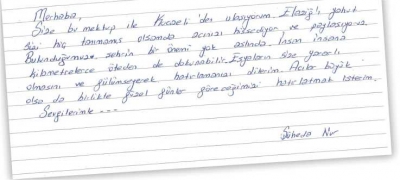 Merhaba,
Size bu mektup ile Kocaeli'den ulaşıyorum. Elazığlı yahut
sizi hiç tanımamış olsamda acınızı hissediyor ve paylaşıyoruz.
Bulunduğumuz şehrin bir önemi yok aslında. İnsan insana
kilometrelerce öteden de dokunabilir. Eşyaların size yararlı
olmasını ve gülümseyerek hatırlamanızı dilerim. Acılar büyük
olsa da birlikte güzel günler göreceğimizi hatırlatmak isterim.
Sevgilerimle ...
Şüheda Nur